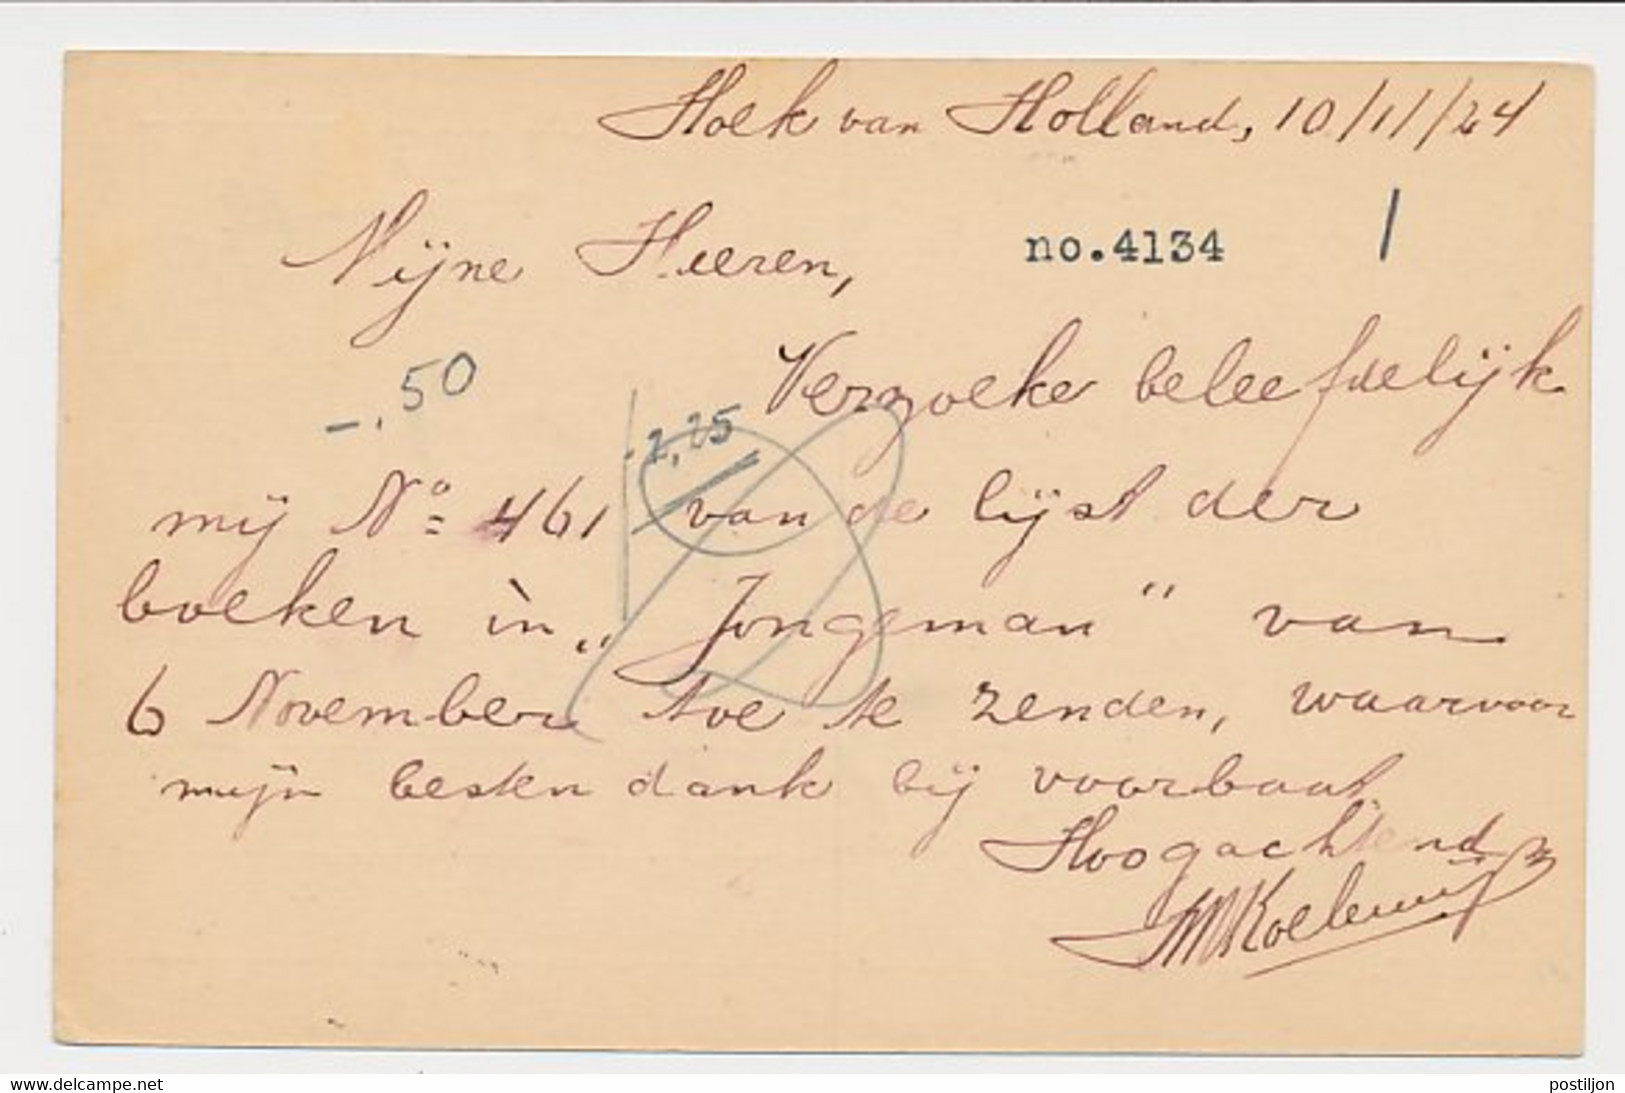 Hoek van Holland, 10/11/24
Mijne Heeren,
no. 4134
-.50
Verzoeke beleefdelijk
1,25
mij No= 461 van de lijst der
boeken in „Jongeman" van
6 November toe te zenden, waarvoor
mijn besten dank bij voorbaat
Hoogachtend
www.delcampe.net
postiljon